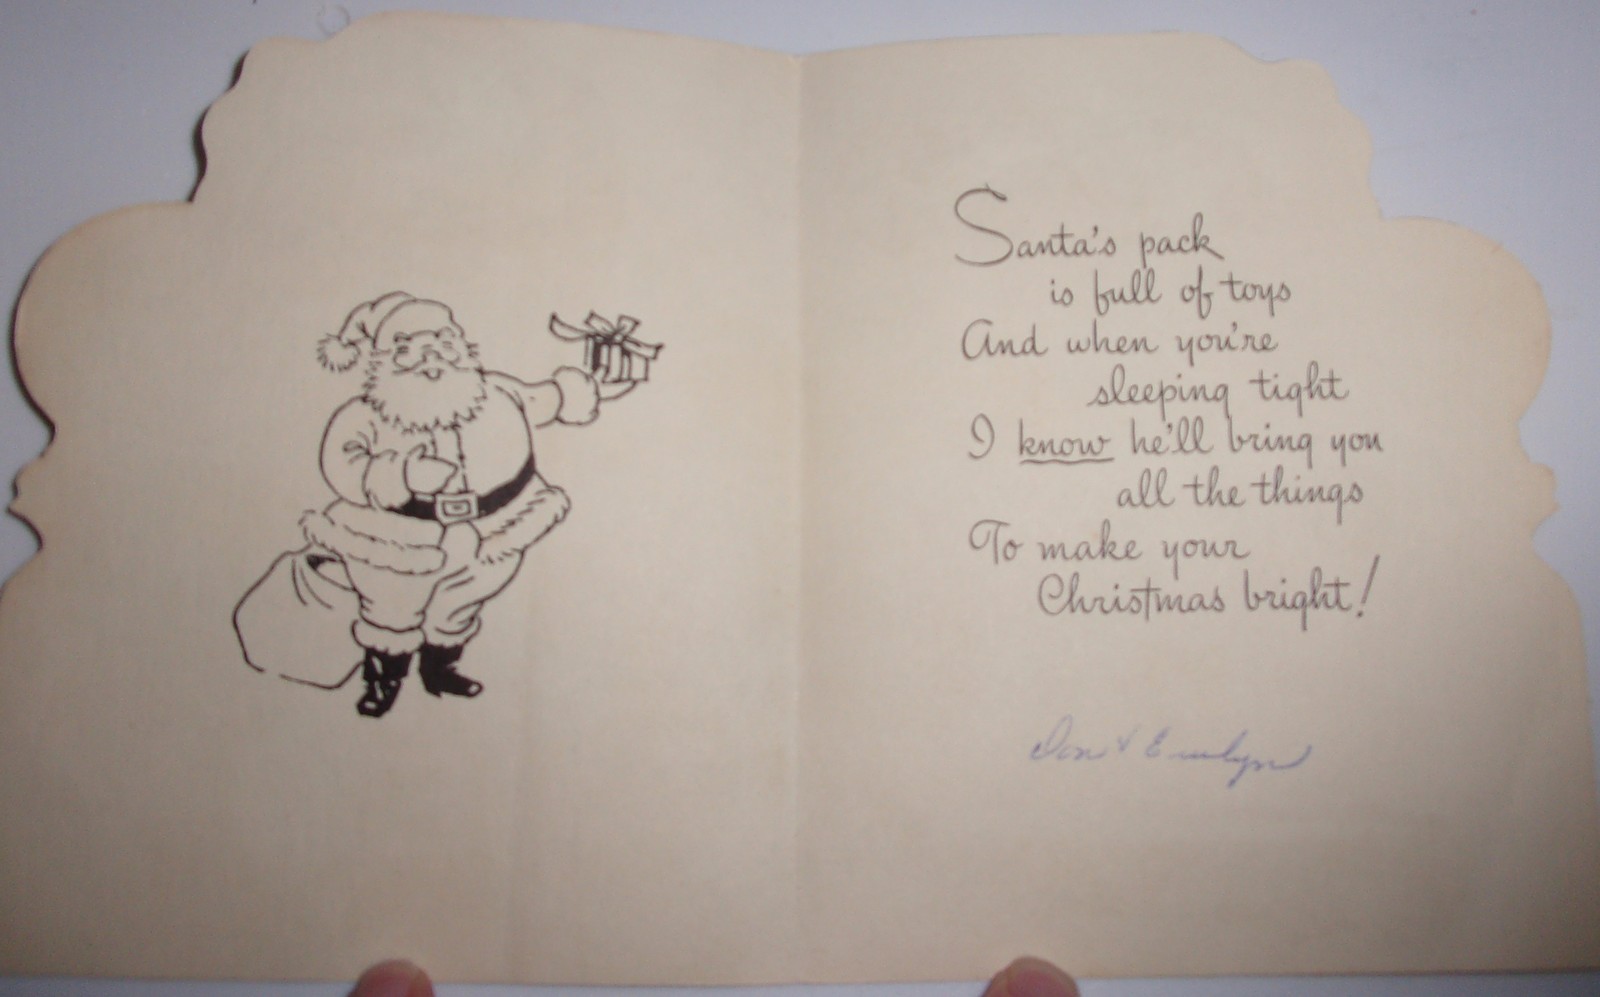 Santa's pack
is full of toys
And when you're
sleeping tight
I know he'll bring you
all the things
To make your
Christmas bright!
Don & Evelyn